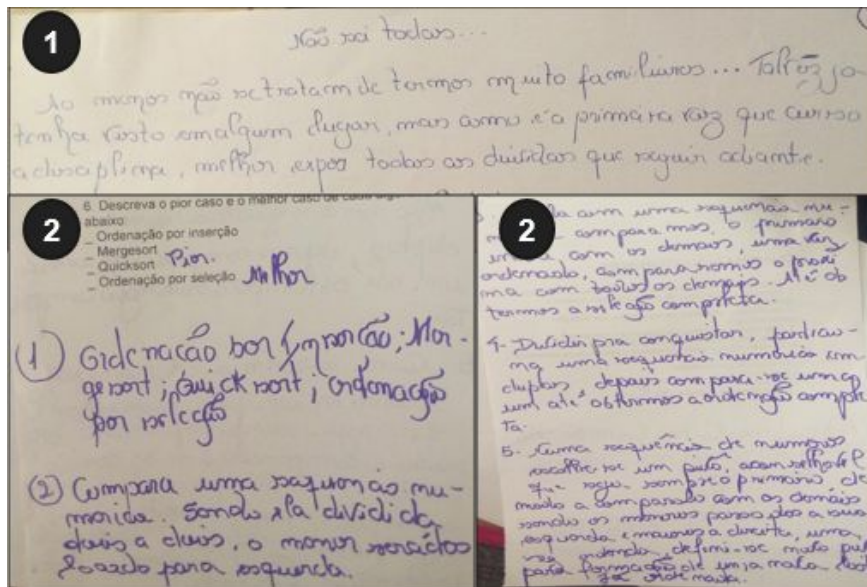 1
Não sei todos...
Ao menos não se tratam de termos muito familiares... Talvez já
tenha visto em algum lugar, mas como é a primeira vez que curso
a disciplina, melhor expor todas as dúvidas que seguir adiante.
2
6. Descreva o pior caso e o melhor caso de cada
abaixo:
_ Ordenação por inserção
_ Mergesort
_ Quicksort Pior.
_ Ordenação por seleção Melhor
1 Ordenação por Inserção; Mer-
gesort; Quick sort; Ordenação
por seleção
2 Compara uma sequencia nu-
merica. Sendo ela dividida
dois a dois, o menor será des
locado para esquerda.
2
com uma sequencia nu-
comparamos o primeiro
com os demais, uma vez
ordenado, comparamos o proxi
mo com todos os demais. Até ob
termos a seleção completa.
4- Dividir pra conquistar, particiu-
na uma sequencia numerica em
duplas, depois compara-se um a
um até obtermos a ordenção comple
ta.
5. Numa sequência de numeros
escolhe-se um pivô, aconselhavel
que seja sempre o primeiro, de
modo a compara-lo com os demais
sendo os menores passados a sua
esquerda e maiores a direita, uma
vez ordenda, defini-se mais
para formação de uma nova